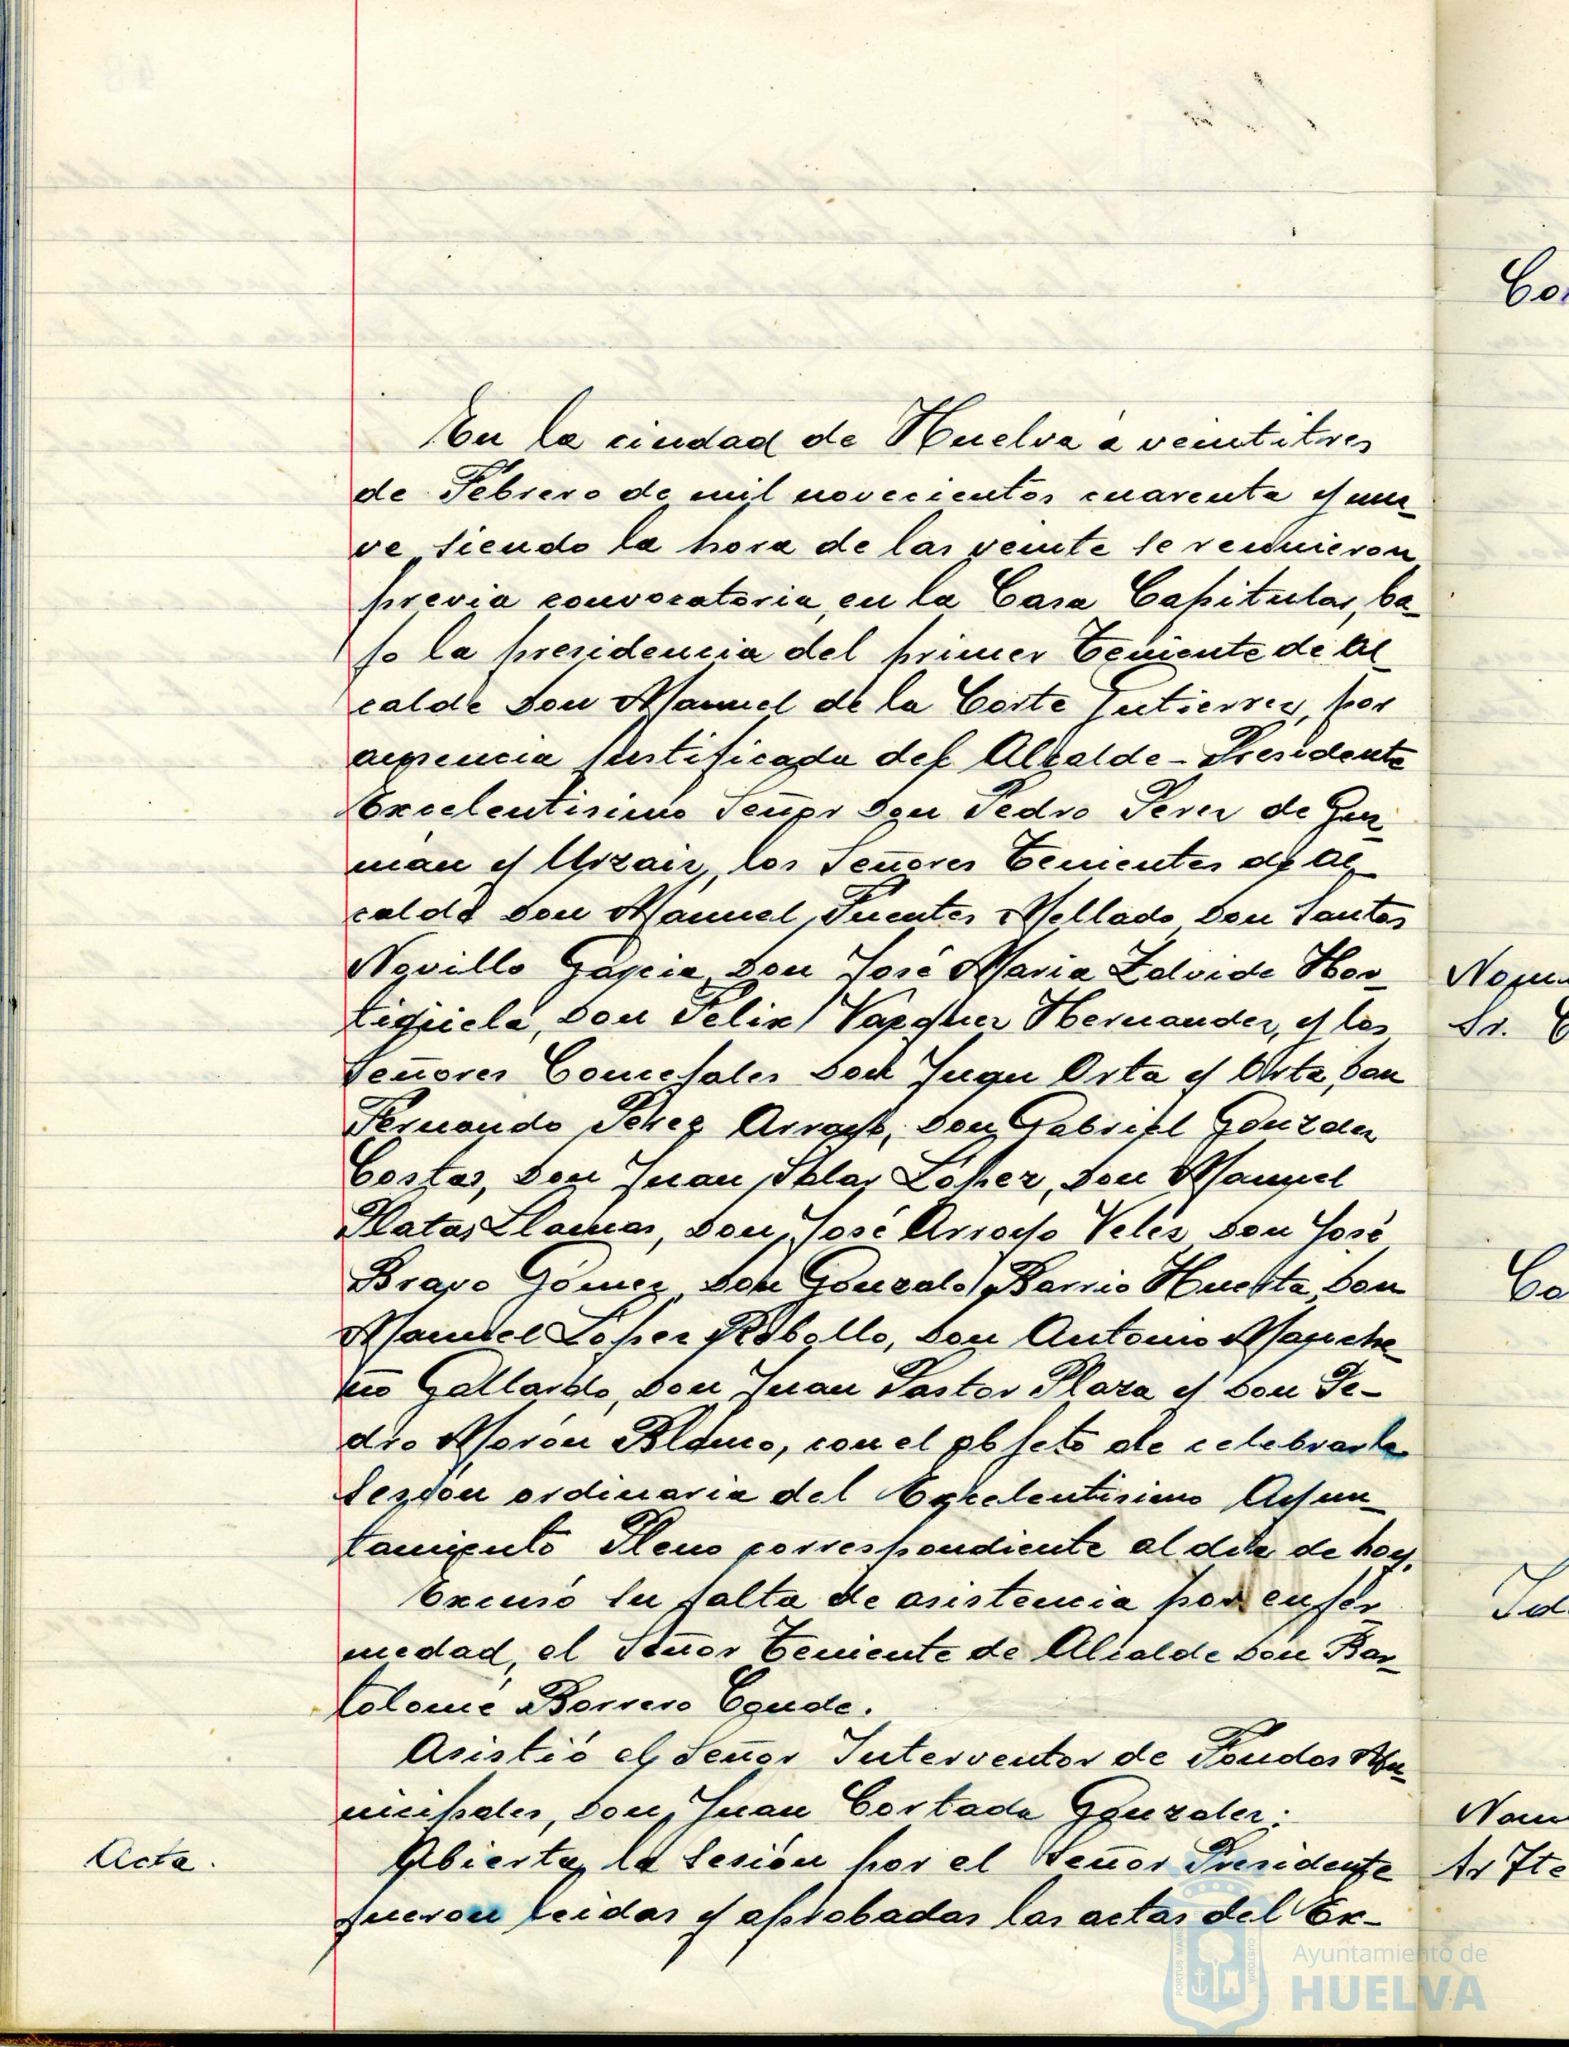 En la ciudad de Huelva à veintitres
de Febrero de mil novecientos cuarenta y nue-
ve, siendo la hora de las veinte se reunieron
previa convocatoria, en la Casa Capitular, ba-
jo la presidencia del primer Teniente de Al-
calde Don Manuel de la Corte Gutierrez, por
ausencia justificada del Alcalde-Presidente
Excelentisimo Señor Don Pedro Perez de Guz-
mán y Urzaiz, los Señores Tenientes de Al-
calde Don Manuel Fuentes Mellado, Don Santos
Novillo Garcia, Don José Maria Zalvide Hor-
tigüela, Don Felix Vazquez Hernandez, y los
Señores Concejales Don Juan Orta y Orta, Don
Fernando Perez Arroyo, Don Gabriel Gonzalez
Costas, Don Juan Salas López, Don Manuel
Plata Llamas, Don José Arroyo Veléz, Don José
Bravo Gómez, Don Gonzalo Barrio Huerta, Don
Manuel López Rebollo, Don Antonio Manche-
ño Gallardo, Don Juan Pastor Plaza y Don Pe-
dro Morón Blanco, con el objeto de celebrar la
Sesión ordinaria del Excelentisimo Ayun-
tamiento Pleno correspondiente al dia de hoy.
Excusó su falta de asistencia por enfer-
medad, el Señor Teniente de Alcalde Don Bar-
tolomé Borrero
Asistió el Señor Interventor de Fondos Mu-
nicipales, Don Juan Cortada Gonzalez.
Acta. Abierta la Sesión por el Señor Presidente
fueron leidas y aprobadas las actas del Ex-
Nom
Sr.
Nom
Ayuntamiento de
HUELVA